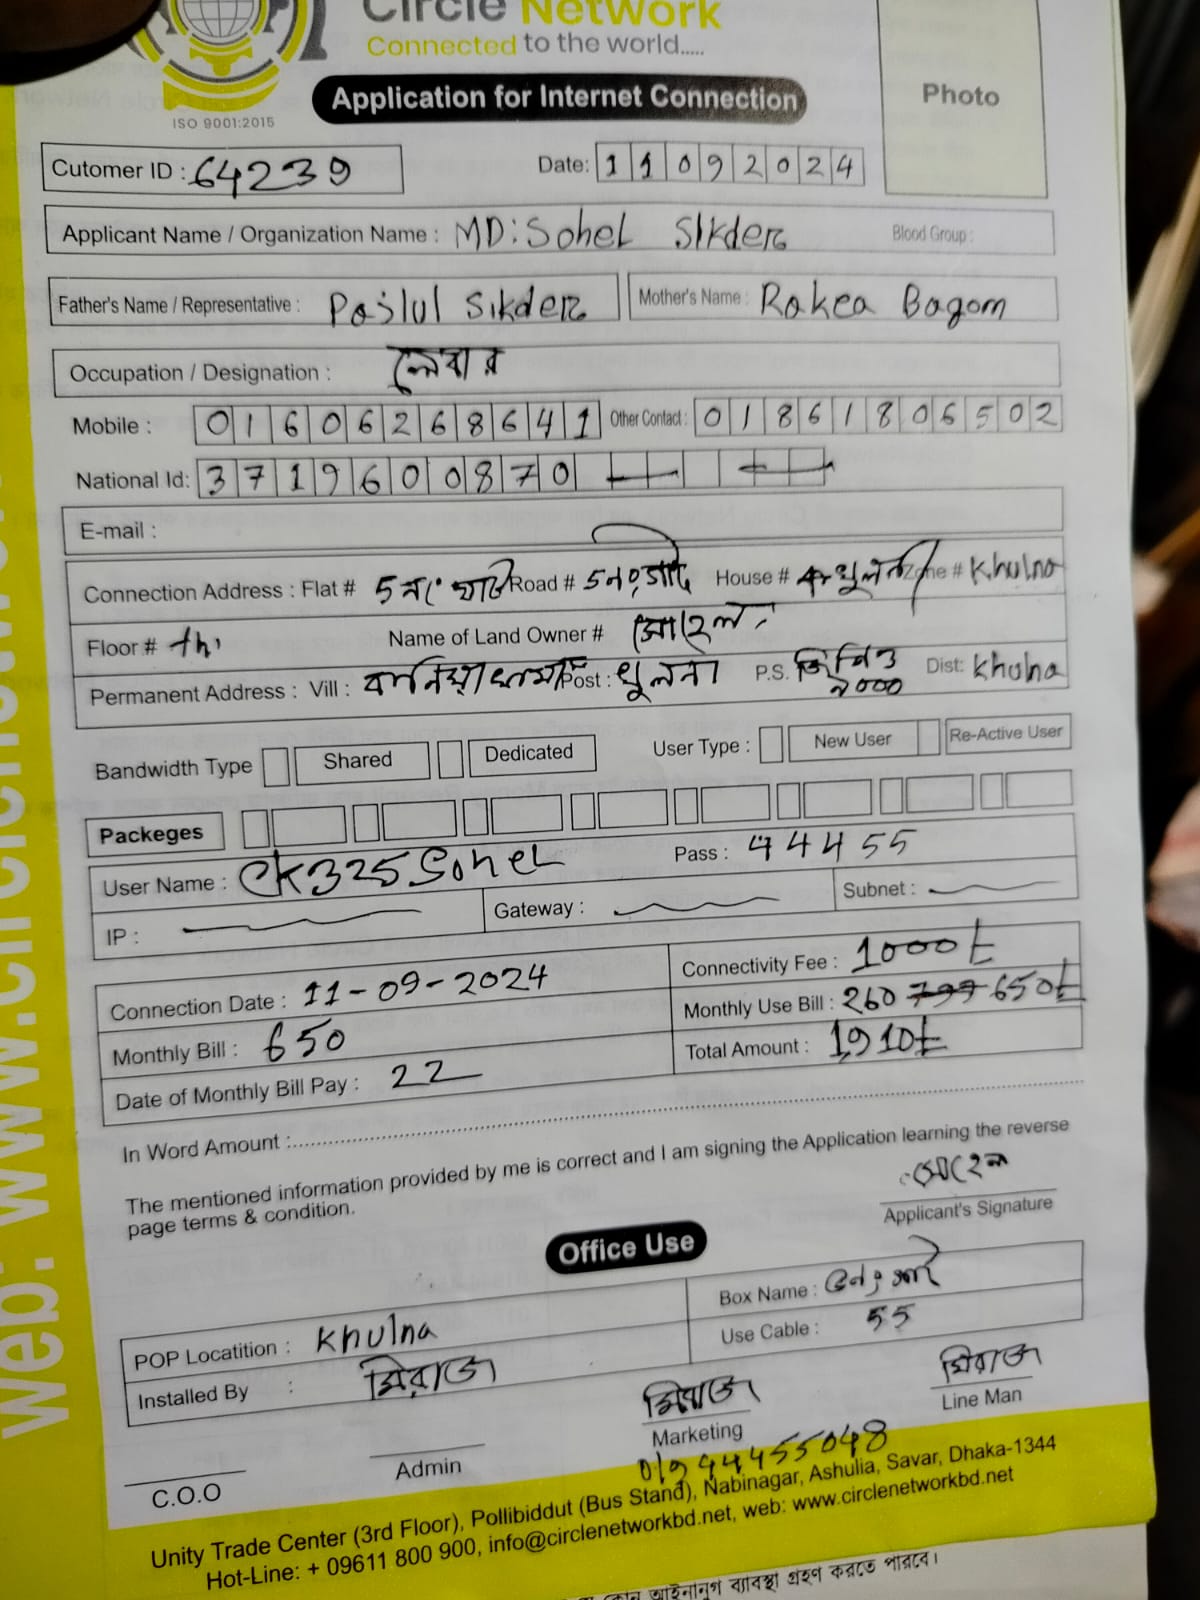 Circle Network
Connected to the world.....
ISO 9001:2015
Application for Internet Connection
Photo
Cutomer ID : 64239
Date: 11092024
Applicant Name / Organization Name : MD:Sohel Sikder Blood Group :
Father's Name / Representative : Pojlul Sikder Mother's Name : Rokea Bagom
Occupation / Designation : লেবার
Mobile : 01606268641 Other Contact : 01861806502
National Id: 3719600870
E-mail :
Connection Address : Flat # 5 নং ঘাট Road # 5 নং ঘাট House # খুলনা Zone # Khulna
Floor # Name of Land Owner # সোহেল
Permanent Address : Vill : Post : খুলনা P.S. জিপিও ৯০০০ Dist: Khulna
Bandwidth Type Shared Dedicated User Type : New User Re-Active User
Packeges
User Name : CK325Sohel Pass : 44455
IP : Gateway : Subnet :
Connection Date : 11-09-2024 Connectivity Fee : 1000t
Monthly Bill : 650 Monthly Use Bill : 260 799 650t
Date of Monthly Bill Pay : 22 Total Amount : 1910t
In Word Amount :
The mentioned information provided by me is correct and I am signing the Application learning the reverse
page terms & condition.
সোহেল
Applicant's Signature
Office Use
POP Locatition : Khulna Box Name :
Installed By : মিরাজ Use Cable : 55
মিরাজ মিরাজ
C.O.O Admin Marketing Line Man
01944455048
Unity Trade Center (3rd Floor), Pollibiddut (Bus Stand), Nabinagar, Ashulia, Savar, Dhaka-1344
Hot-Line: + 09611 800 900, info@circlenetworkbd.net, web: www.circlenetworkbd.net
কোন আইনানুগ ব্যাবস্থা গ্রহণ করতে পারবে।
web: www.circlenetwork